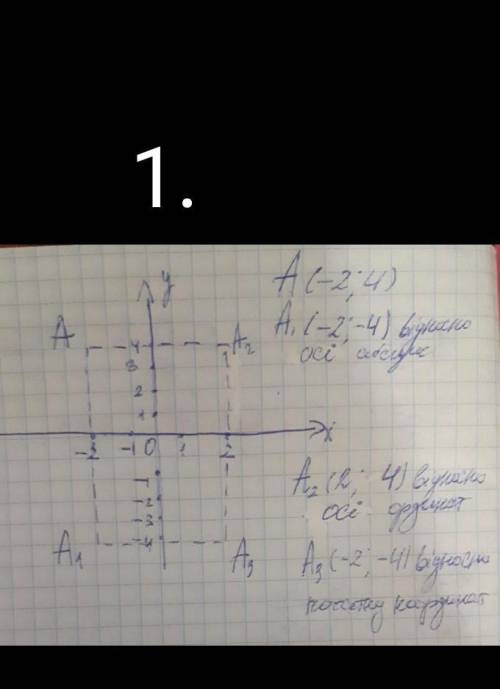 1.
y
A (-2; 4)
A₁ (-2; -4) відносно
осі абсцис
A - 4 - A₂
3
2
1
-2 -1 0 1 2 x
A₂ (2; 4) відносно
осі ординат
-1
-2
-3
A₁ -4 A₃
A₃ (-2; -4) відносно
початку кардинат